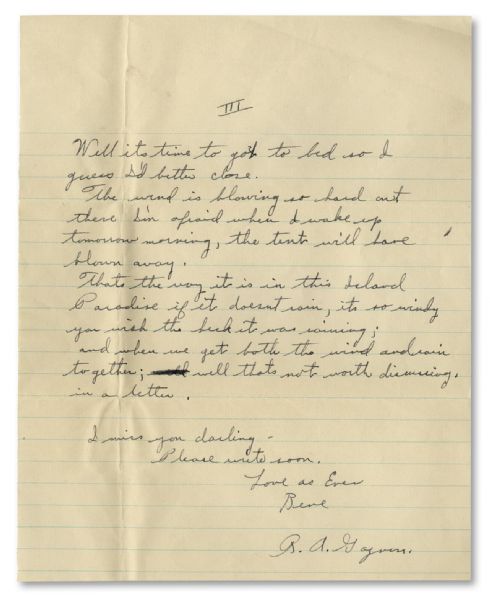 III
Well its time to go to bed so I
guess I'd better close.
The wind is blowing so hard out
there I'm afraid when I wake up
tomorrow morning, the tent will have
blown away.
Thats the way it is in this Island
Paradise if it doesnt rain, its so windy
you wish the heck it was raining;
and when we get both the wind and rain
together; well thats not worth discussing.
in a letter.
I miss you darling -
Please write soon.
Love as Ever
Rene
R. A. Gagnon.